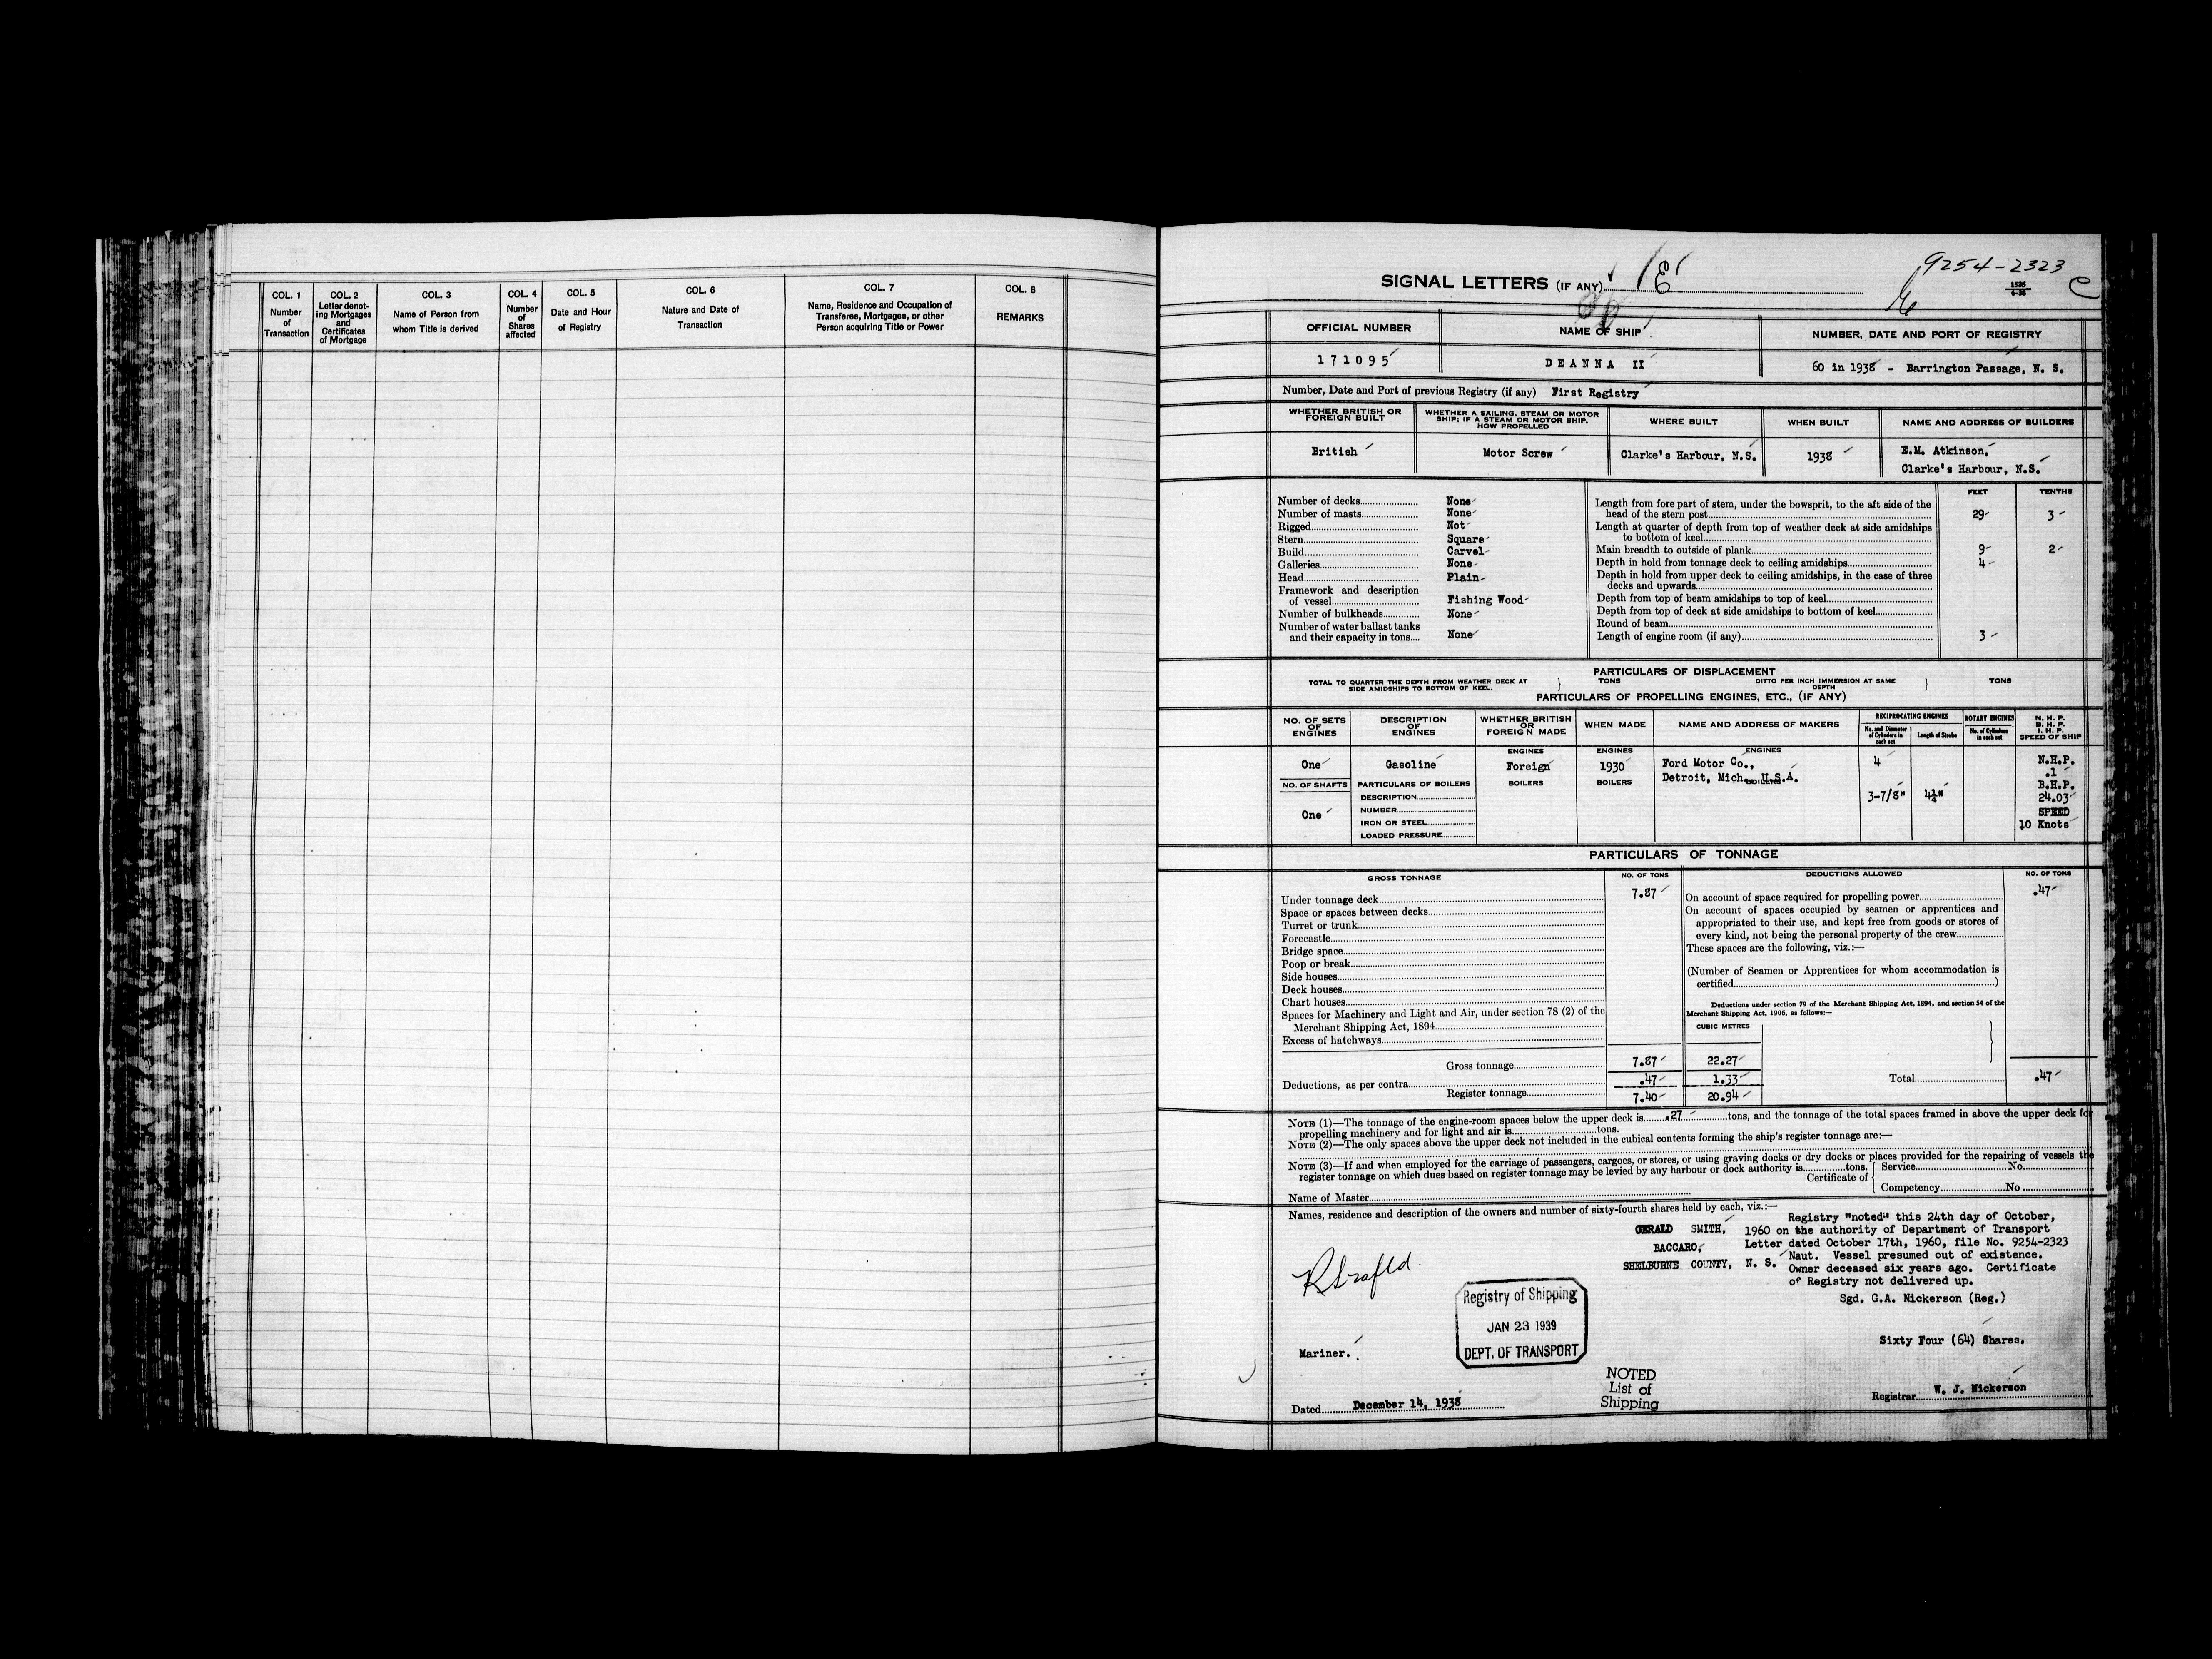 COL. 1
Number
of
Transaction
COL. 2
Letter denot-
ing Mortgages
and
Certificates
of Mortgage
COL. 3
Name of Person from
whom Title is derived
COL. 4
Number
of
Shares
affected
COL. 5
Date and Hour
of Registry
COL. 6
Nature and Date of
Transaction
COL. 7
Name, Residence and Occupation of
Transferee, Mortgagee, or other
Person acquiring Title or Power
COL. 8
REMARKS
9254-2323
SIGNAL LETTERS (IF ANY)
OFFICIAL NUMBER
NAME OF SHIP
NUMBER, DATE AND PORT OF REGISTRY
171095
DEANNA II
60 in 1938 - Barrington Passage, N. S.
Number, Date and Port of previous Registry (if any) First Registry
WHETHER BRITISH OR
FOREIGN BUILT
WHETHER A SAILING, STEAM OR MOTOR
SHIP; IF A STEAM OR MOTOR SHIP,
HOW PROPELLED
WHERE BUILT
WHEN BUILT
NAME AND ADDRESS OF BUILDERS
British
Motor Screw
Clarke's Harbour, N.S.
1938
E.M. Atkinson,
Clarke's Harbour, N.S.
Number of decks None
Number of masts None
Rigged Not
Stern Square
Build Carvel
Galleries None
Head Plain
Framework and description
of vessel Fishing Wood
Number of bulkheads None
Number of water ballast tanks
and their capacity in tons None
FEET TENTHS
Length from fore part of stem, under the bowsprit, to the aft side of the
head of the stern post 29 3
Length at quarter of depth from top of weather deck at side amidships
to bottom of keel
Main breadth to outside of plank 9 2
Depth in hold from tonnage deck to ceiling amidships 4
Depth in hold from upper deck to ceiling amidships, in the case of three
decks and upwards
Depth from top of beam amidships to top of keel
Depth from top of deck at side amidships to bottom of keel
Round of beam
Length of engine room (if any) 3
PARTICULARS OF DISPLACEMENT
TOTAL TO QUARTER THE DEPTH FROM WEATHER DECK AT
SIDE AMIDSHIPS TO BOTTOM OF KEEL.
TONS
DITTO PER INCH IMMERSION AT SAME
DEPTH
TONS
PARTICULARS OF PROPELLING ENGINES, ETC., (IF ANY)
NO. OF SETS
OF
ENGINES
DESCRIPTION
OF
ENGINES
WHETHER BRITISH
OR
FOREIGN MADE
WHEN MADE
NAME AND ADDRESS OF MAKERS
RECIPROCATING ENGINES
No. and Diameter
of Cylinders in
each set
Length of Stroke
ROTARY ENGINES
No. of Cylinders
in each set
N. H. P.
B. H. P.
I. H. P.
SPEED OF SHIP
One
Gasoline
ENGINES
Foreign
ENGINES
1930
ENGINES
Ford Motor Co.,
Detroit, Mich., U.S.A.
4
3-7/8"
N.H.P.
.1
B.H.P.
24.03
SPEED
10 Knots
NO. OF SHAFTS
One
PARTICULARS OF BOILERS
DESCRIPTION
NUMBER
IRON OR STEEL
LOADED PRESSURE
BOILERS
BOILERS
BOILERS
PARTICULARS OF TONNAGE
GROSS TONNAGE
NO. OF TONS
DEDUCTIONS ALLOWED
NO. OF TONS
Under tonnage deck 7.87
Space or spaces between decks
Turret or trunk
Forecastle
Bridge space
Poop or break
Side houses
Deck houses
Chart houses
Spaces for Machinery and Light and Air, under section 78 (2) of the
Merchant Shipping Act, 1894
Excess of hatchways
On account of space required for propelling power .47
On account of spaces occupied by seamen or apprentices and
appropriated to their use, and kept free from goods or stores of
every kind, not being the personal property of the crew
These spaces are the following, viz.:—
(Number of Seamen or Apprentices for whom accommodation is
certified )
Deductions under section 79 of the Merchant Shipping Act, 1894, and section 54 of the
Merchant Shipping Act, 1906, as follows:—
CUBIC METRES
Gross tonnage 7.87 22.27
Deductions, as per contra .47 1.33
Total .47
Register tonnage 7.40 20.94
NOTE (1)—The tonnage of the engine-room spaces below the upper deck is .27 tons, and the tonnage of the total spaces framed in above the upper deck for
propelling machinery and for light and air is tons.
NOTE (2)—The only spaces above the upper deck not included in the cubical contents forming the ship's register tonnage are:—
NOTE (3)—If and when employed for the carriage of passengers, cargoes, or stores, or using graving docks or dry docks or places provided for the repairing of vessels the
register tonnage on which dues based on register tonnage may be levied by any harbour or dock authority is tons.
Certificate of
Service No.
Competency No
Name of Master
Names, residence and description of the owners and number of sixty-fourth shares held by each, viz.:—
GERALD SMITH,
BACCARO,
SHELBURNE COUNTY, N. S.
Registry "noted" this 24th day of October,
1960 on the authority of Department of Transport
Letter dated October 17th, 1960, file No. 9254-2323
Naut. Vessel presumed out of existence.
Owner deceased six years ago. Certificate
of Registry not delivered up.
Sgd. G.A. Nickerson (Reg.)
Registry of Shipping
JAN 23 1939
DEPT. OF TRANSPORT
Mariner.
Sixty Four (64) Shares.
NOTED
List of
Shipping
Dated December 14, 1938
Registrar W. J. Nickerson